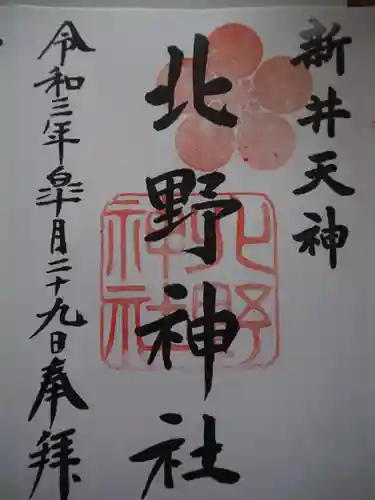 新井天神
北野神社
北野神社
令和三年皐月二十九日奉拝